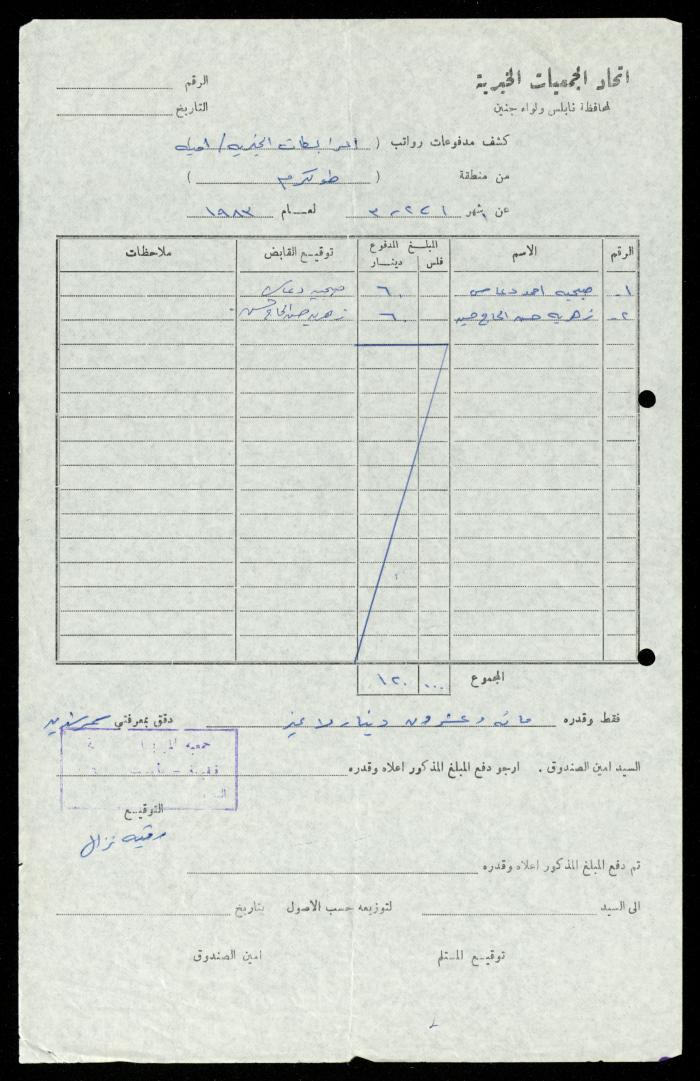 اتحاد الجمعيات الخيرية
لمحافظة نابلس ولواء جنين
الرقم
التاريخ
كشف مدفوعات رواتب (المرابطات الخيريه /
من منطقة ( طولكرم )
عن شهر ١ ، ٢ ، ٣ لعام ١٩٨٣
الرقم الاسم المبلغ المدفوع توقيع القابض ملاحظات
فلس دينار
١- صبحيه احمد دعاس ٦٠ صبحيه دعاس
٢- زهريه حسن الحاج حسين ٦٠ زهريه حسن الحاج حسين
المجموع ٠٠٠ ١٢٠
فقط وقدره مائه وعشرون دينار لا غير دقق بمعرفتي
جمعية
السيد امين الصندوق . ارجو دفع المبلغ المذكور اعلاه وقدره
التوقيع
نزال
تم دفع المبلغ المذكور اعلاه وقدره
الى السيد لتوزيعه حسب الاصول بتاريخ
توقيع المستلم امين الصندوق